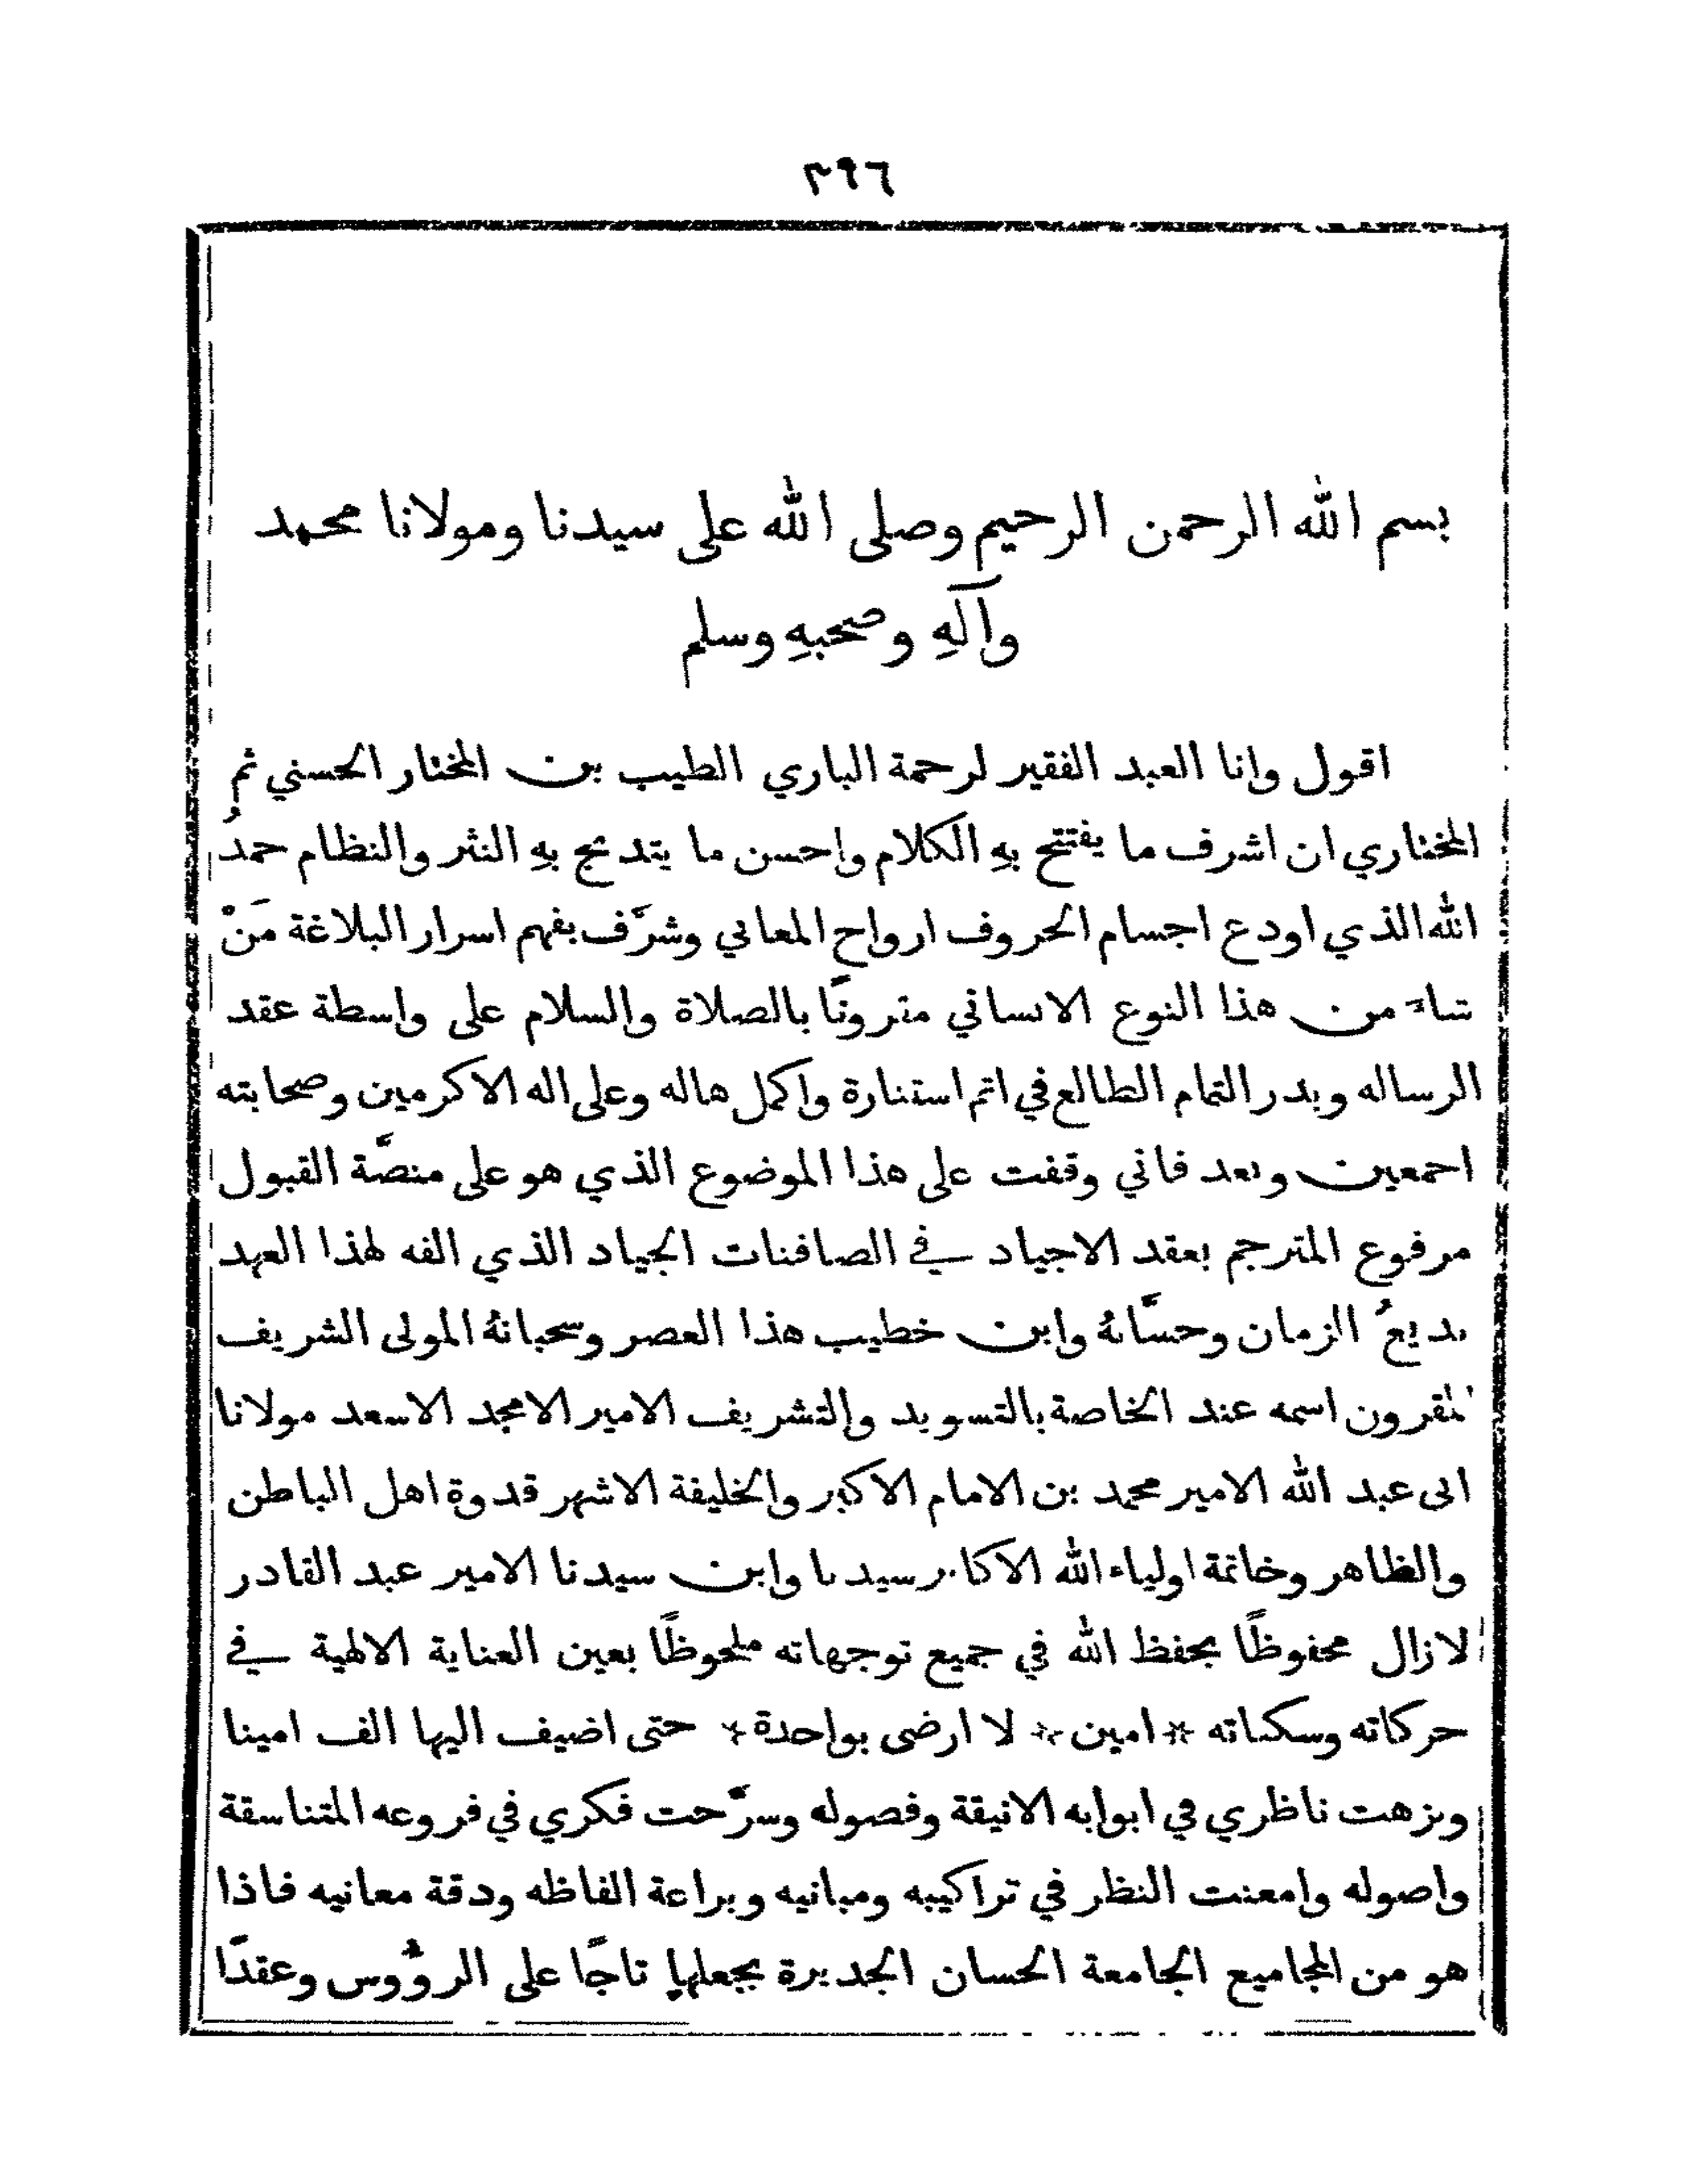 ٣٩٦
بسم الله الرحمن الرحيم وصلى الله على سيدنا ومولانا محمد
وآلهِ وصحبهِ وسلم
اقول وانا العبد الفقير لرحمة الباري الطيب بن المختار الحسني ثم
المختاري ان اشرف ما يفتتح بهِ الكلام واحسن ما يتدبج بهِ النثر والنظام حمدُ
الله الذي اودع اجسام الحروف ارواح المعاني وشرَّف بفهم اسرار البلاغة مَنْ
شاء من هذا النوع الانساني مقرونًا بالصلاة والسلام على واسطة عقد
الرساله وبدر التمام الطالع في اتم استنارة واكمل هاله وعلى اله الاكرمين وصحابته
اجمعين وبعد فاني وقفت على هذا الموضوع الذي هو على منصَّة القبول
مرفوع المترجم بعقد الاجياد في الصافنات الجياد الذي الفه لهذا العهد
بديعُ الزمان وحسَّانهُ وابن خطيب هذا العصر وسحبانهُ المولى الشريف
المقرون اسمه عند الخاصة بالتسويد والتشريف الامير الامجد الاسعد مولانا
ابى عبد الله الامير محمد بن الامام الاكبر والخليفة الاشهر قدوة اهل الباطن
والظاهر وخاتمة اولياء الله الاكابر سيدنا وابن سيدنا الامير عبد القادر
لازال محفوظًا بحفظ الله في جميع توجهاته ملحوظًا بعين العناية الالهية في
حركاته وسكناته * امين * لا ارضى بواحدة * حتى اضيف اليها الف امينا
ونزهت ناظري في ابوابه الانيقة وفصوله وسرَّحت فكري في فروعه المتناسقة
واصوله وامعنت النظر في تراكيبه ومبانيه وبراعة الفاظه ودقة معانيه فاذا
هو من المجاميع الجامعة الحسان الجديرة بجعلها تاجًا على الرؤُوس وعقدًا